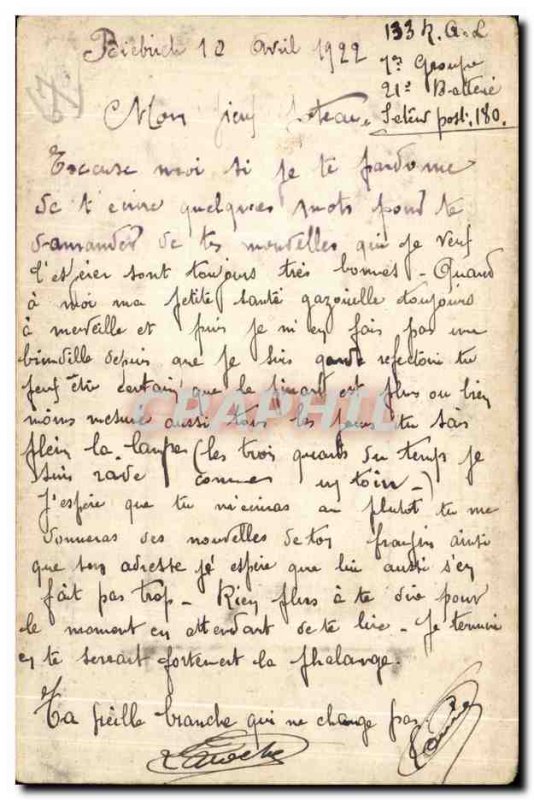 Biebrich 12 Avril 1922
133 R.A.L
7e Groupe
21e Batterie
Secteur post. 180.
Mon vieux
Excuse moi si je te
de t'ecrire quelques mots pour te
demander de tes nouvelles que je veux
l'espérer sont toujours très bonnes - Quand
à moi ma petite santé gazouille toujours
à merveille et puis je m'en fais pas une
brindille depuis que je suis garde refectoire tu
peux être certain que le pinard est plus ou bien
moins mesuré aussi tous les jours tu sais
plein la lampe (les trois quarts du temps je
suis rave comme un toin -)
J'espère que tu m'ecriras au plutot tu me
donneras des nouvelles de ton frangin ainsi
que son adresse je espère que lui aussi s'en
fait pas trop - Rien plus à te dire pour
le moment en attendant de te lire - Je termine
en te serrant fortement la phalange.
Ta vieille branche qui ne change pas
Laroche
CPAPHIL